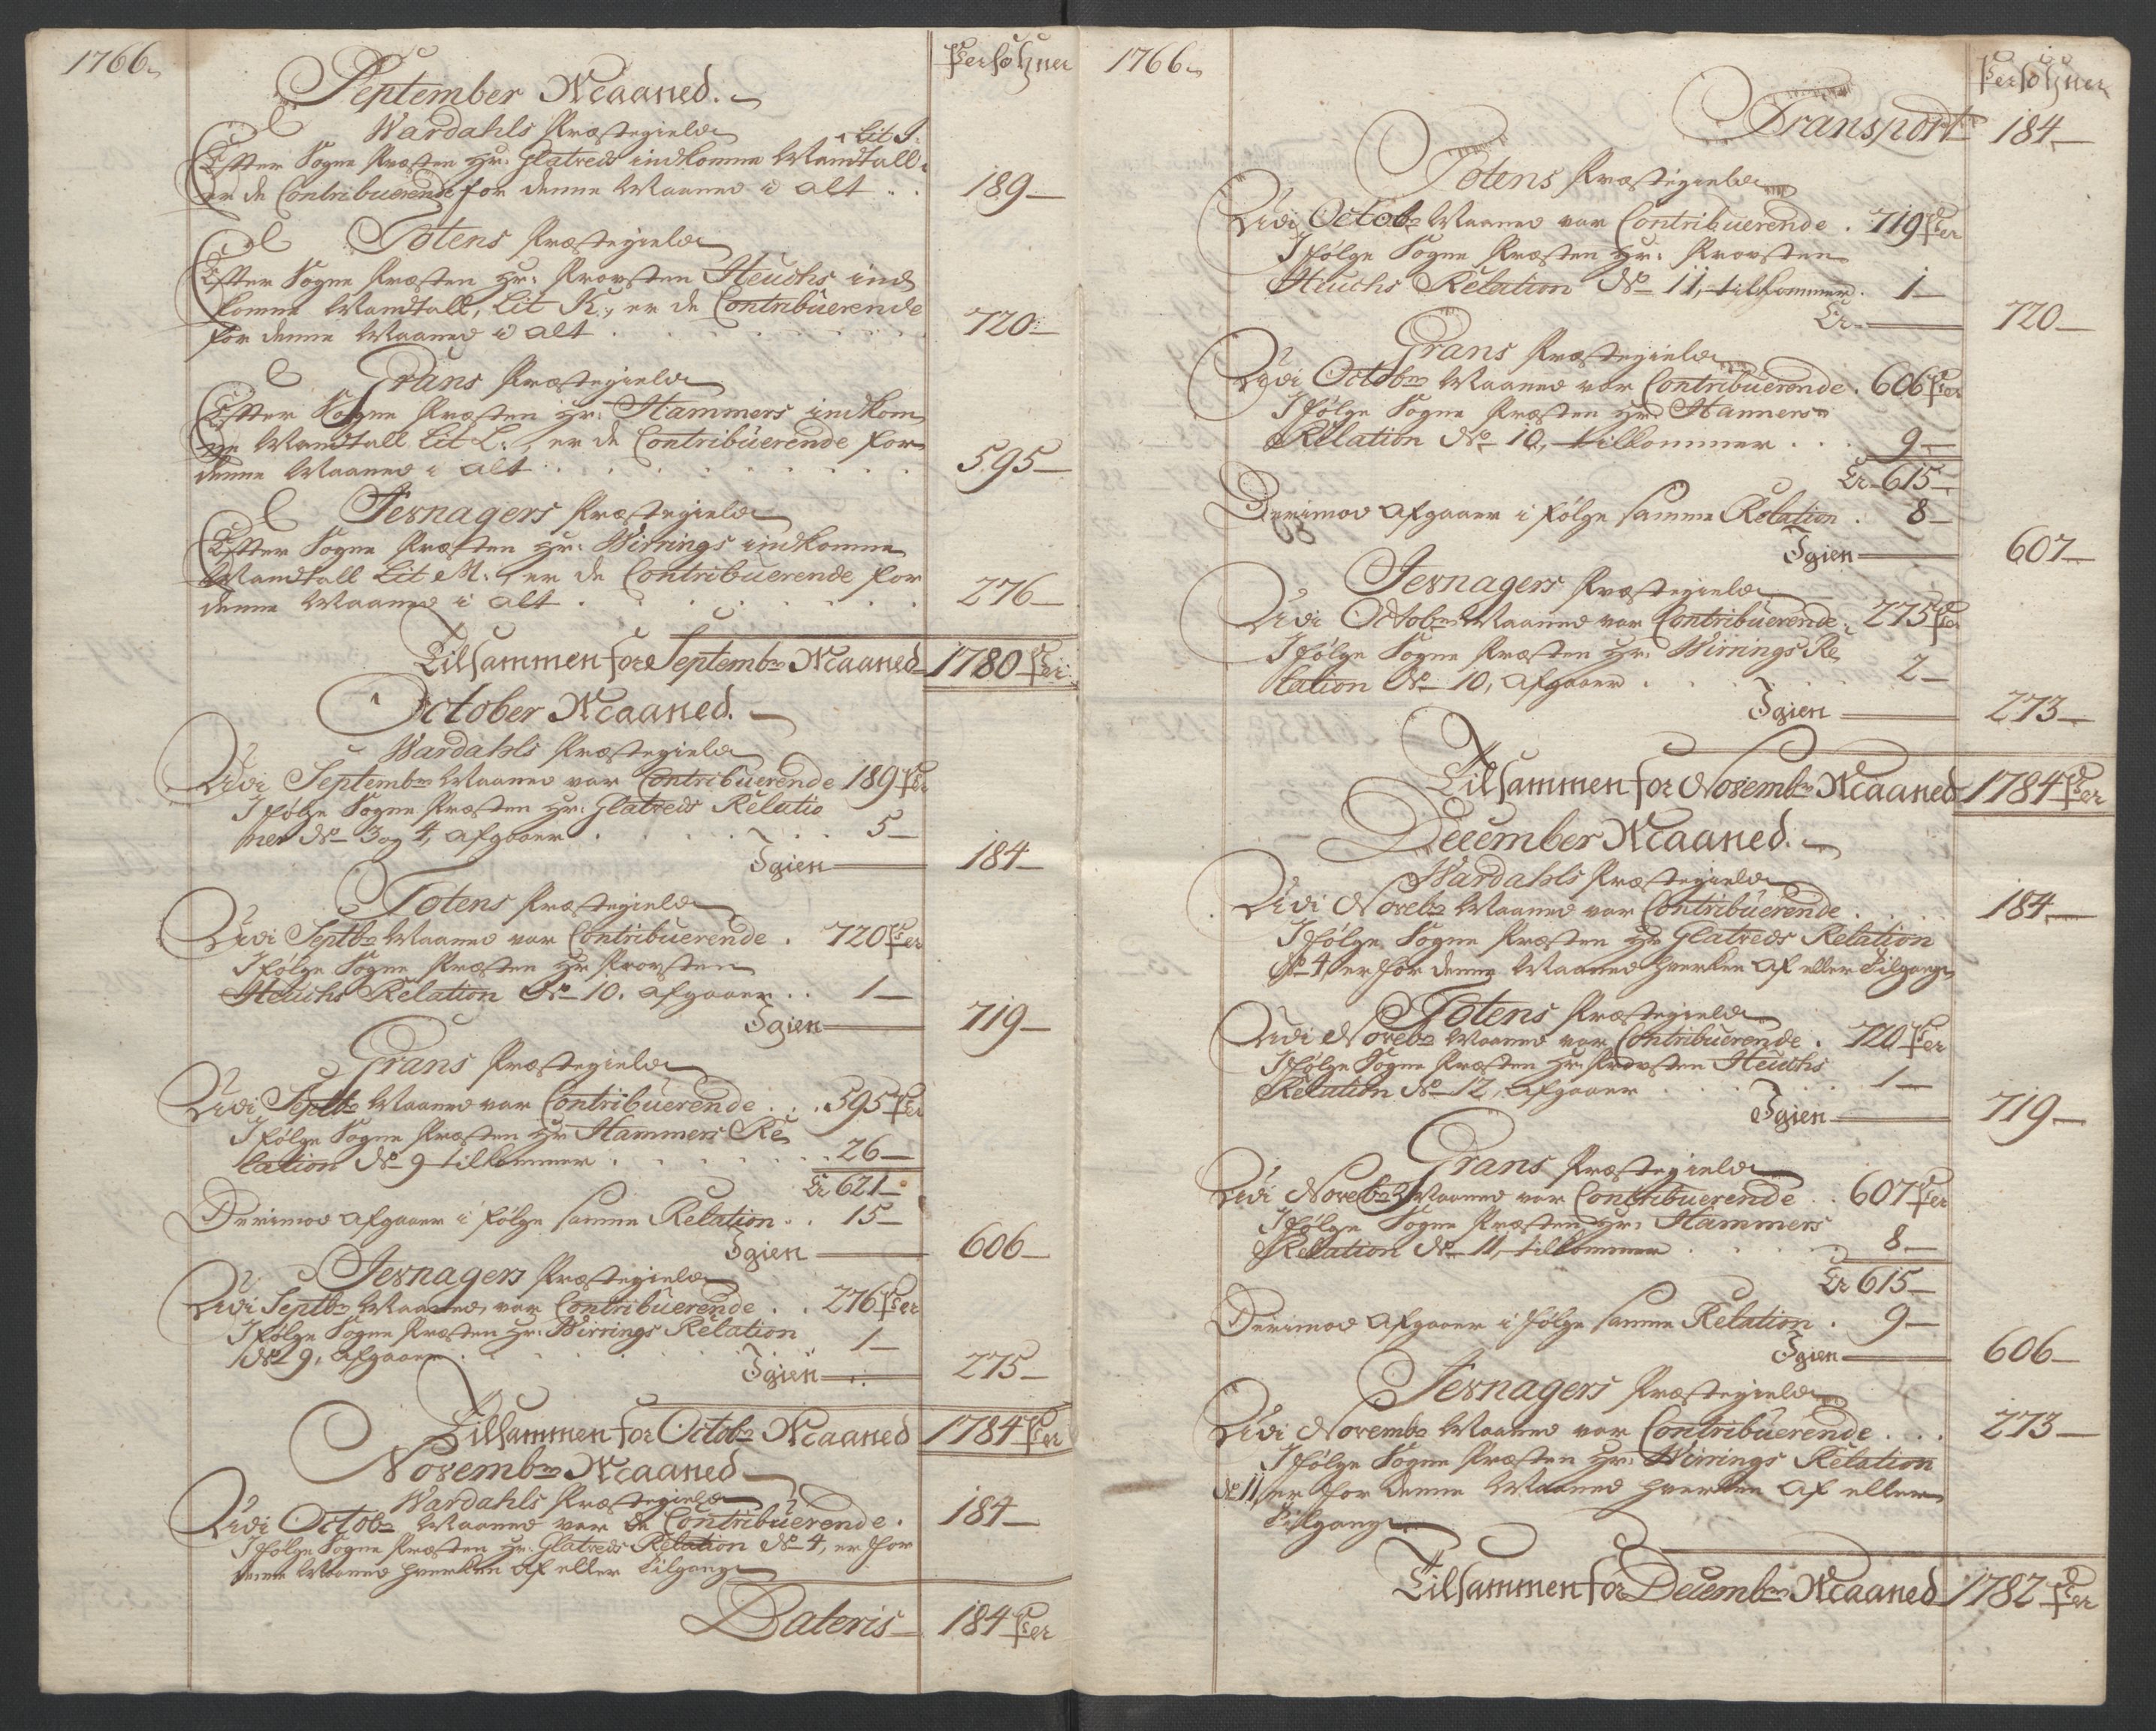 1766
Persohner
September Maaned.
Wardahls Præstegield
Lit I.
Efter Sogne Præsten Hr. Glatveds indkomne Mandtall
er de Contribuerende for denne Maaned i alt . . 189
Totens Præstegield
Efter Sogne Præsten Hr. Provsten Heuchs ind
komne Mandtall, Lit K., er de Contribuerende
for denne Maaned i alt . . . 720
Grans Præstegield
Efter Sogne Præsten Hr. Hammers indkom
ne Mandtall Lit L., er de Contribuerende for
denne Maaned i alt . . . 595
Jevnagers Præstegield
Efter Sogne Præsten Hr. Wirrings indkomne
Mandtall Lit M., er de Contribuerende for
denne Maaned i alt . . . 276
Tilsammen for Septembr Maaned 1780 Per
October Maaned.
Wardahls Præstegield
Udi Septembr Maaned var Contribuerende 189 Per
I følge Sogne Præsten Hr. Glatveds Relatio
ner No 3 og 4, afgaaer . . . 5
Igien 184
Totens Præstegield
Udi Septbr Maaned var Contribuerende . 720 Per
I følge Sogne Præsten Hr Provsten
Heuchs Relation No 10. afgaaer . . 1
Igien 719
Grans Præstegield
Udi Septbr Maaned var Contribuerende . . . 595 Per
I følge Sogne Præsten Hr Hammers Re
lation No 9 tilkommer . . . 26
Er 621
Derimod afgaaer i følge samme Relation . . 15
Igien 606
Jevnagers Præstegield
Udi Septbr Maaned, var Contribuerende . . 276 Per
I følge Sogne Præsten Hr. Wirrings Relation
No 9, afgaaer . . . 1
Igien 275
Tilsammen for Octobr Maaned 1784 Per
Novembr Maaned
Wardahls Præstegield
Udi Octobr Maaned var de Contribuerende . 184
I følge Sogne Præsten Hr. Glatveds Relation No 4, er for
denne Maaned hverken af eller Tilgang
Lateris 184 Per
1766
Persohner
Transport 184
Totens Præstegield
Udi Octobr Maaned var Contribuerende . 719 Per
I følge Sogne Præsten Hr. Provsten
Heuchs Relation No 11, tilkommer . 1
Er 720
Grans Præstegield
Udi Octobr Maaned var Contribuerende . 606 Per
I følge Sogne Præsten Hr. Hammers
Relation No 10, tilkommer . . . 9
Er 615
Derimod afgaaer i følge samme Relation . 8
Igien 607
Jevnagers Præstegield
Udi Octobr Maaned var Contribuerende . 275 Per
I følge Sogne Præsten Hr. Wirrings Re
lation No 10, afgaaer . . . 2
Igien 273
Tilsammen for Novembr Maaned 1784 Per
December Maaned.
Wardahls Præstegield
Udi Novebr Maaned var Contribuerende . . . 184
I følge Sogne Præsten Hr Glatveds Relation
No 4, er for denne Maaned hverken af eller Tilgang
Totens Præstegield
Udi Novebr Maaned var Contribuerende . 720 Per
I følge Sogne Præsten Hr. Provsten Heuchs
Relation No 12, afgaaer . . . 1
Igien 719
Grans Præstegield
Udi Novebr Maaned var Contribuerende . . 607 Per
I følge Sogne Præsten Hr. Hammers
Relation No 11, tilkommer . . . 8
Er 615
Derimod afgaaer i følge samme Relation . 9
Igien 606
Jevnagers Præstegield
Udi Novembr Maaned var Contribuerende . . . 273
I følge Sogne Præsten Hr. Wirrings Relation
No 11, er for denne Maaned hverken af eller
Tilgang
Tilsammen for Decembr Maaned 1782 Per